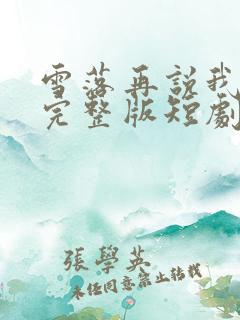 雪落再説我
完整版短劇
張學英
未经同意禁止转载